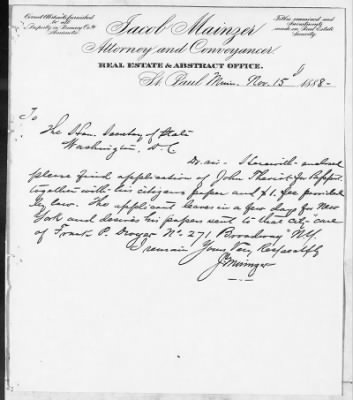 Correct Abstracts furnished
to all
Property in Ramsey Co.
Minnesota
Titles examined and
Investments
made on Real Estate
Security.
Jacob Mainzer
Attorney and Conveyancer
REAL ESTATE & ABSTRACT OFFICE.
St. Paul Minn. Nov. 15th 1888-
To
The Hon. Secretary of State
Washington, D.C
Dr. sir. Herewith enclosed
please find application of John
together with his citizens paper and $1. fee provided
by law. The applicant leaves in a few days for New
York and desires his papers sent to that city "care
of Frank P. No. 271 Broadway" N.Y.
I remain Yours Very Respectfully
J Mainzer